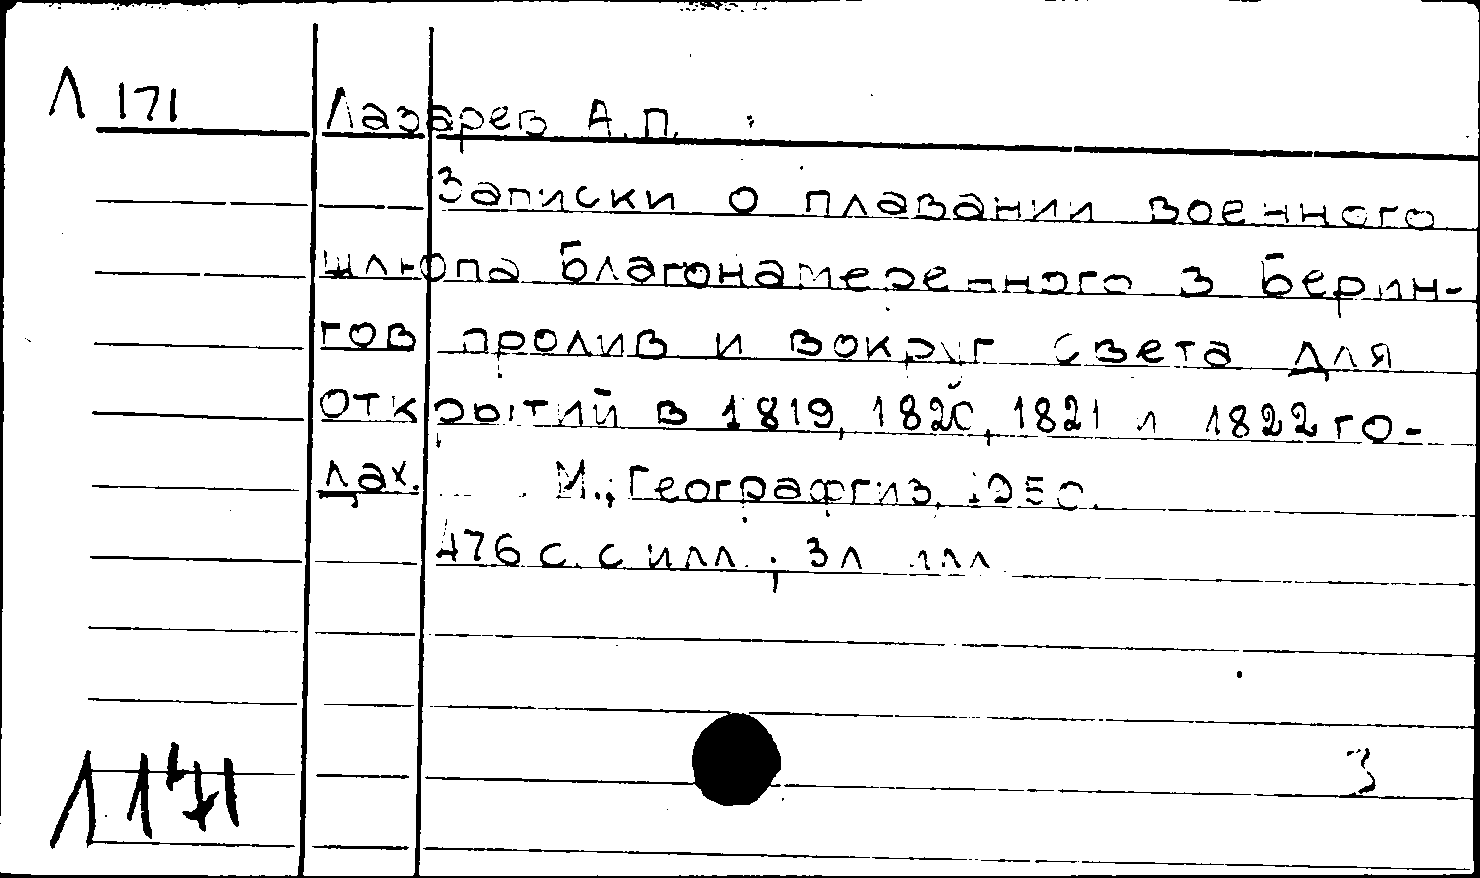 Л 171 Лазарев А.П.
Записки о плавании военного
шлюпа Благонамеренного в Берин-
гов пролив и вокруг света для
открытий в 1819, 1820, 1821 и 1822 го-
дах. М., Географгиз, 1950.
476 с. с илл.; 3 л. илл
3
Л 171